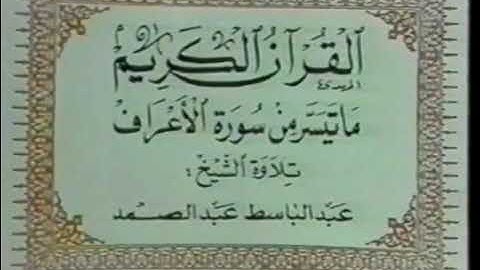 القرآن الكريم
ما تيسر من سورة الأعراف
تلاوة الشيخ :
عبد الباسط عبد الصمد